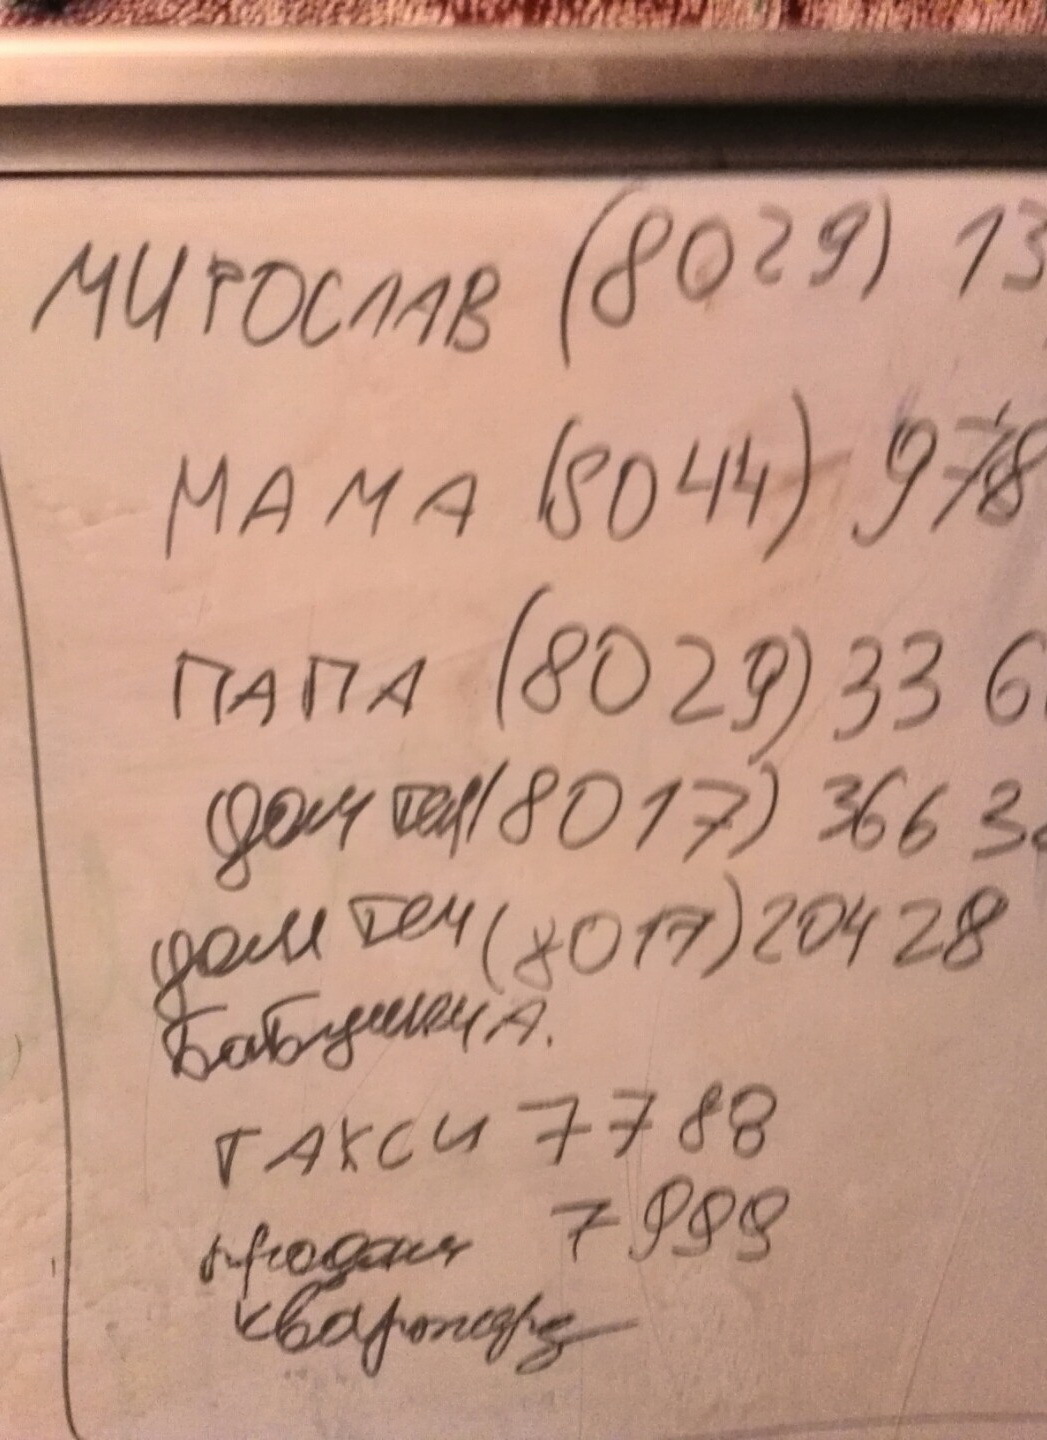 МИРОСЛАВ (8029) 13
МАМА (8044) 978
ПАПА (8029) 33 6
дом тел (8017) 366 3
дом тел (8017) 204 28
Бабушки А.
ТАКСИ 7788
продам 7999
квартиру